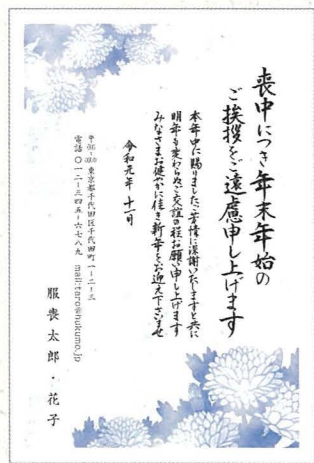 喪中につき年末年始の
ご挨拶をご遠慮申し上げます
本年中に賜りましたご芳情に深謝いたしますと共に
明年も変わらぬご交誼の程お願い申し上げます
みなさまお健やかに佳き新年をお迎え下さいませ
令和元年 十一月
東京都千代田区千代田町一-二-三
電話〇一二-三四五-六七八九 mail:taro@hukumo.jp
服喪太郎・花子